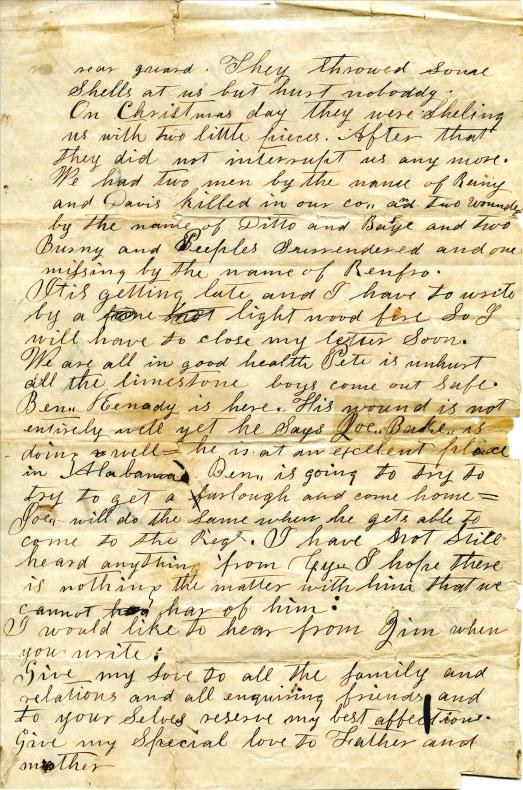 rear guard. They throwed some
Shells at us but hurt nobody.
On Christmas day they were Sheling
us with two little pieces. After that
they did not interrupt us any more.
We had two men by the name of
and Davis killed in our co,, and two wounded
by the name of Ditto and and two
Burny and Peeples Surrendered and one
missing by the name of Renfro.
It is getting late and I have to write
by a light wood fire So I
will have to close my letter Soon.
We are all in good health Pete is unhurt
all the limestone boys come out Safe.
Ben,, Kenady is here. His wound is not
entirely well yet he Says Joe,, is
doing well = he is at an excellent place
in Alabama Ben,, is going to try to
try to get a furlough and come home =
Joe,, will do the Same when he gets able to
come to the Regt. I have not Still
heard anything from I hope there
is nothing the matter with him that we
cannot har of him:
I would like to hear from Jim when
you write:
Give my love to all the family and
relations and all enquiring friends and
to your Selves reserve my best affections.
Give my Special love to Father and
mother